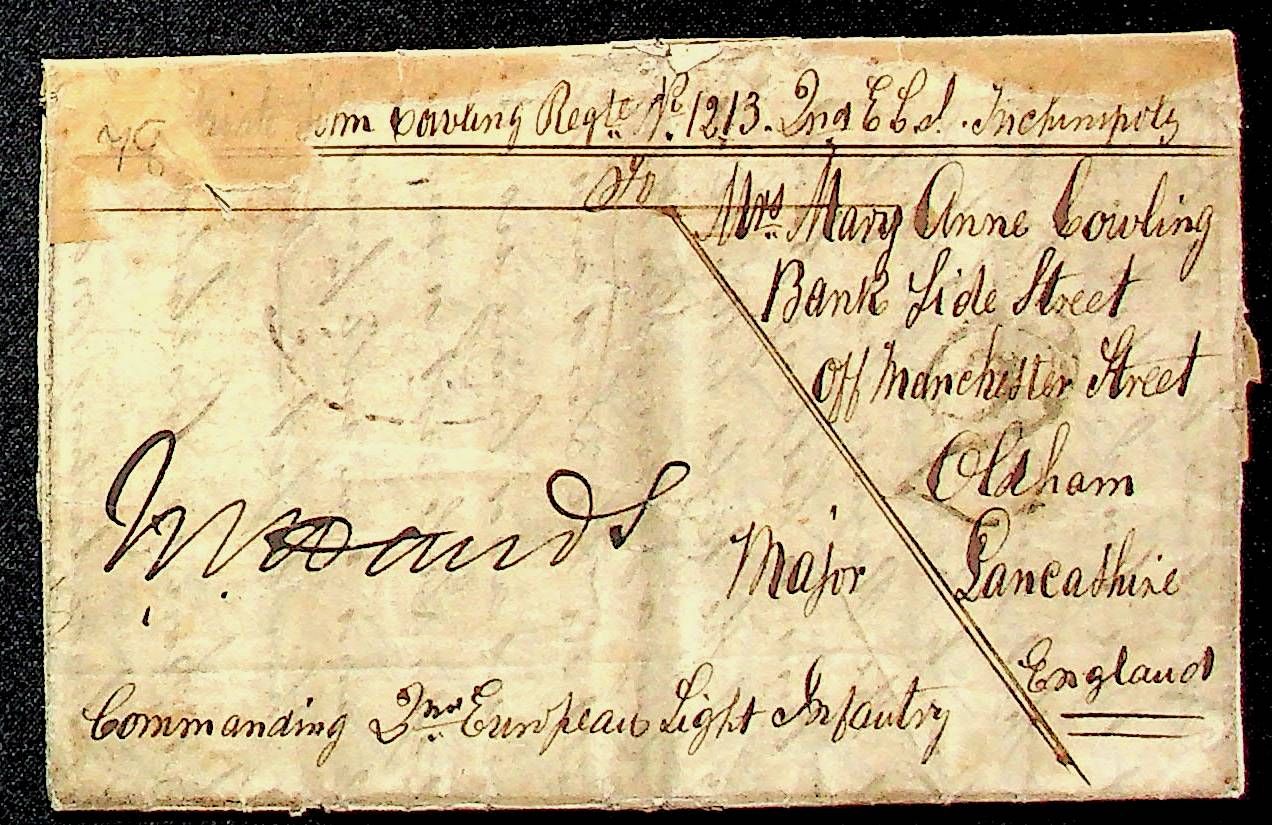 Cowling Regte No. 1213. 2nd E L I. Trichinopoly
78
To
Mrs Mary Anne Cowling
Bank Side Street
Off Manchester Street
Oldham
Major Lancashire
England
Commanding 2nd European Light Infantry